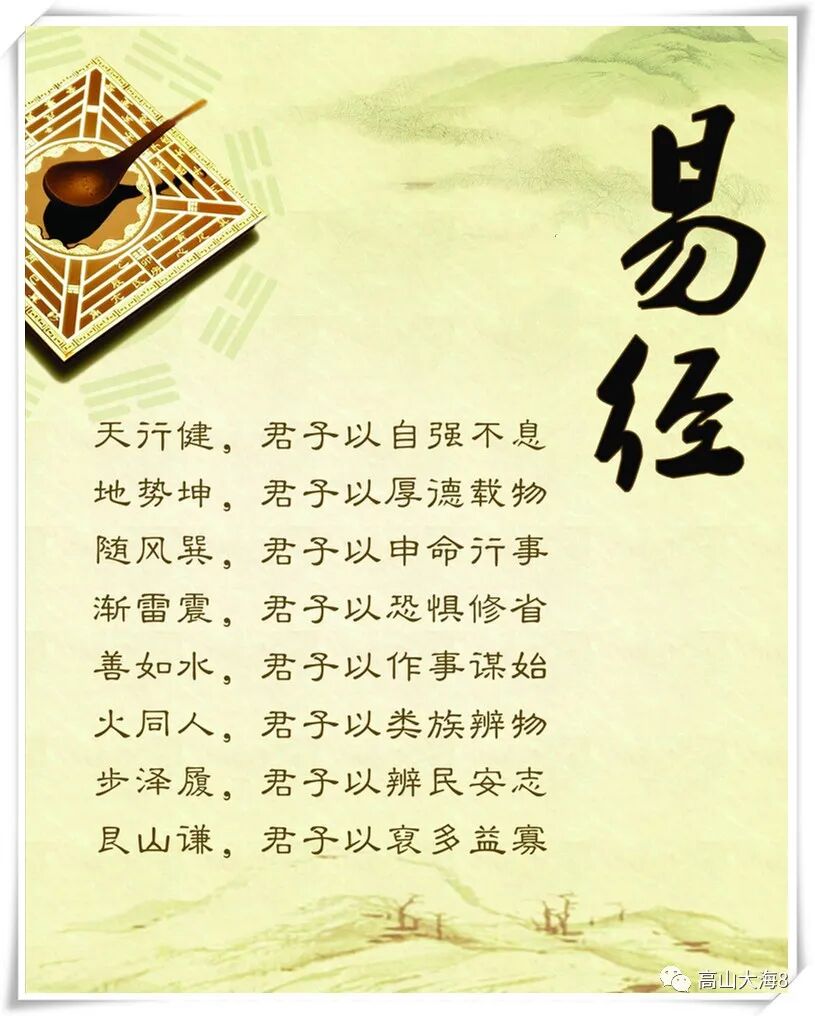 易经
天行健，君子以自强不息
地势坤，君子以厚德载物
随风巽，君子以申命行事
渐雷震，君子以恐惧修省
善如水，君子以作事谋始
火同人，君子以类族辨物
步泽履，君子以辨民安志
艮山谦，君子以裒多益寡
高山大海8